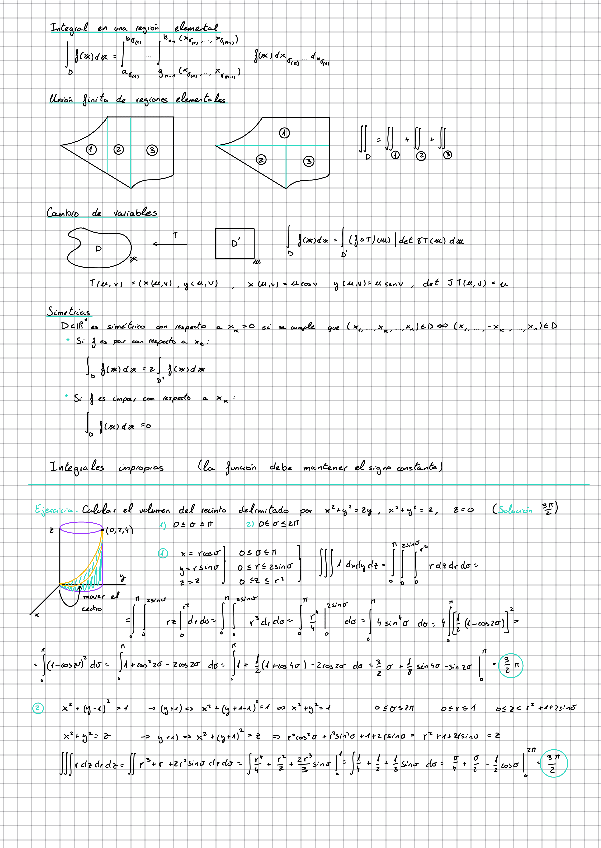 Integral en una región elemental
∫_D f(x)dx = ∫_{a_σ(1)}^{b_σ(1)} ... ∫_{g_{n-1}(x_σ(1), ..., x_σ(n-1))}^{h_{n-1}(x_σ(1), ..., x_σ(n-1))} f(x) dx_σ(n) ... dx_σ(1)
Unión finita de regiones elementales
1 2 3
1 2 3
∬_D = ∬_① + ∬_② + ∬_③
Cambio de variables
D x T D' u ∫_D f(x)dx = ∫_{D'} (f∘T)(u) |det JT(u)| du
T(u,v) = (x(u,v), y(u,v)) , x(u,v) = u cos v y(u,v) = u sen v , det JT(u,v) = u
Simetrías
D⊂ℝⁿ es simétrico con respecto a x_k = 0 si se cumple que (x₁, ..., x_k, ..., x_n)∈D ⇔ (x₁, ..., -x_k, ..., x_n)∈D
• Si f es par con respecto a x_k:
∫_D f(x)dx = 2∫_{D'} f(x)dx
• Si f es impar con respecto a x_k:
∫_D f(x)dx = 0
Integrales impropias (la función debe mantener el signo constante)
Ejercicio Calcular el volumen del recinto delimitado por x²+y²=2y, x²+y²=z, z=0 (Solución 3π/2)
z (0,2,4) 1) 0≤σ≤π 2) 0≤σ≤2π
y x mover el centro
① x = r cosσ 0≤σ≤π
y = r sinσ 0≤r≤2sinσ
z = z 0≤z≤r²
∭ 1 dxdydz = ∫_0^π ∫_0^{2sinσ} ∫_0^{r²} r dz dr dσ =
= ∫_0^π ∫_0^{2sinσ} rz |_0^{r²} dr dσ = ∫_0^π ∫_0^{2sinσ} r³ dr dσ = ∫_0^π r⁴/4 |_0^{2sinσ} dσ = ∫_0^π 4 sin⁴σ dσ = 4∫_0^π [1/2 (1-cos2σ)]² =
= ∫_0^π (1-cos2σ)² dσ = ∫_0^π 1+cos²2σ-2cos2σ dσ = ∫_0^π 1+1/2(1+cos4σ)-2cos2σ dσ = 3/2 σ + 1/8 sin4σ - sin2σ |_0^π = 3/2 π
② x²+(y-1)²=1 → (y+1) ⇔ x²+(y+1-1)²=1 ⇔ x²+y²=1 0≤σ≤2π 0≤r≤1 0≤z≤r²+1+2rsinσ
x²+y²=z → y+1) ⇔ x²+(y+1)²=z ⇔ r²cos²σ+r²sin²σ+1+2rsinσ = r²+1+2rsinσ = z
∭ r dz dr dσ = ∬ r³+r+2r²sinσ dr dσ = ∫ r⁴/4 + r²/2 + 2r³/3 sinσ |_0^1 = ∫ 1/4 + 1/2 + 1/3 sinσ dσ = σ/4 + σ/2 - 1/2 cosσ |_0^{2π} = 3π/2